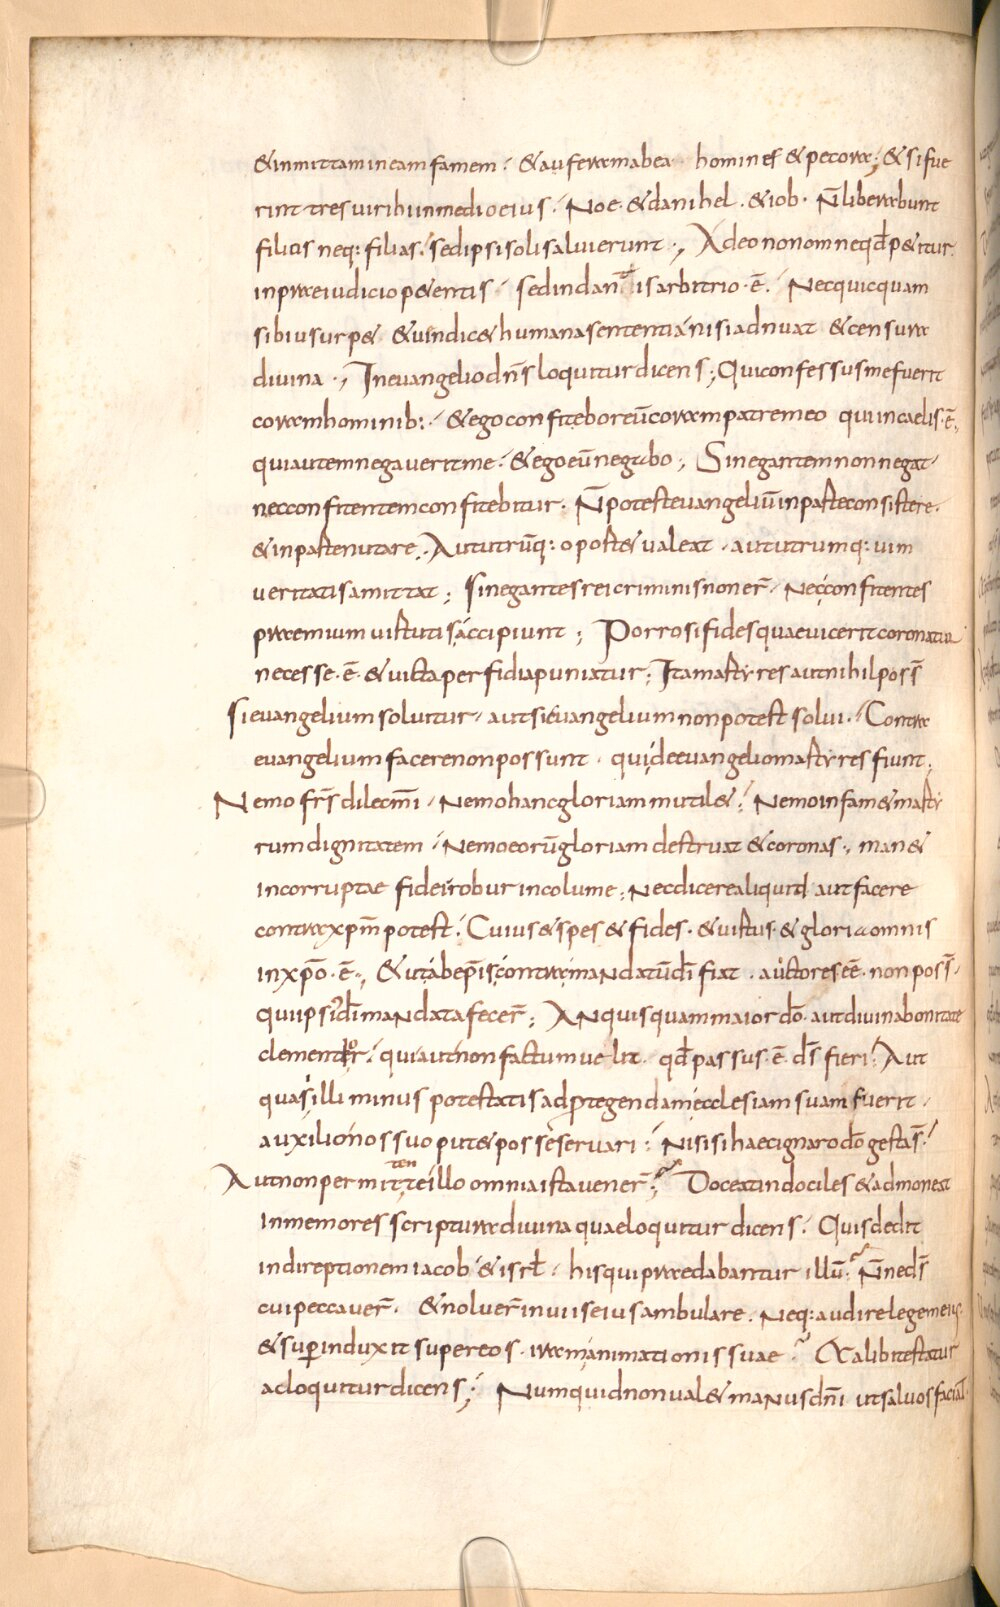 &inmittam in eam famem · & auferam ab ea · homines & pecora; & si fue
rint tres viri hii in medio eius · Noe · & danihel · & iob · N̄ liberabunt
filios neq: filias · sed ipsi soli salvi erunt ·, Adeo non omne qđ p&itur
in praeiudicio p&entis · sed in dantis arbitrio · ē · Nec quicquam
sibi usurp& & uindic& humana sententia nisi adnuat & censura
divina ·, In evangelio dn̄s loquitur dicens; Qui confessus me fuerit
coram hominib: · & ego confitebor eū coram patre meo qui in caelis · ē ·,
qui autem negaverit me · & ego eū negabo; Si negantem non negat ·
nec confitentem confitebitur · N̄ potest evangeliū in parte consistere ·
& in parte nutare · Aut utrūq: oport& valeat · aut utrumq: uim
veritatis amittat; Si negantes rei criminis non er̄ · Nec confitentes
praemium uirtutis accipiunt; Porro si fides quae vicerit coronatur
necesse · ē · & uicta perfidia puniatur; Ita martyres aut nihil poss̄
si evangelium solvitur · aut si evangelium non potest solvi · Contra
evangelium facere non possunt · qui de evangelio martyres fiunt;
Nemo fr̄s dilec̄mi · Nemo hanc gloriam mutil& · Nemo infam& marty
rum dignitatem · Nemo eorū gloriam destruat & coronas ·, man&
incorruptae fidei robur incolume; Nec dicere aliquid aut facere
contra xp̄m potest · Cuius & spes & fides · & uirtus · & gloria omnis
in xp̄o · ē ·, & ut ab ep̄is contra mandatū dī fiat · auctores eē · non poss̄ ·
qui ipsi dī mandata fecer̄; An quisquam maior dō · aut divina bonitate
clementior · qui aut non factum velit · qđ passus · ē · ds̄ fieri · Aut
quasi illi minus potestatis ad protegendam ecclesiam suam fuerit ·
auxilio nos suo put& posse servari · Nisi si haec ignaro dō gestas̄ ·
Aut non permittente illo omnia ista vener̄ · Doceat indociles & admoneat
inmemores scriptura divina quae loquitur dicens · Quis dedit
in direptionem iacob & isrł · his qui praedabantur illū · N̄ne ds̄
cui peccaver̄ · & noluer̄ in uiis eius ambulare · Neq: audire legem eius ·
& superinduxit super eos · iram animationis suae · Et alibi testatur
ac loquitur dicens; Numquid non val& manus dn̄i ut salvos faciat